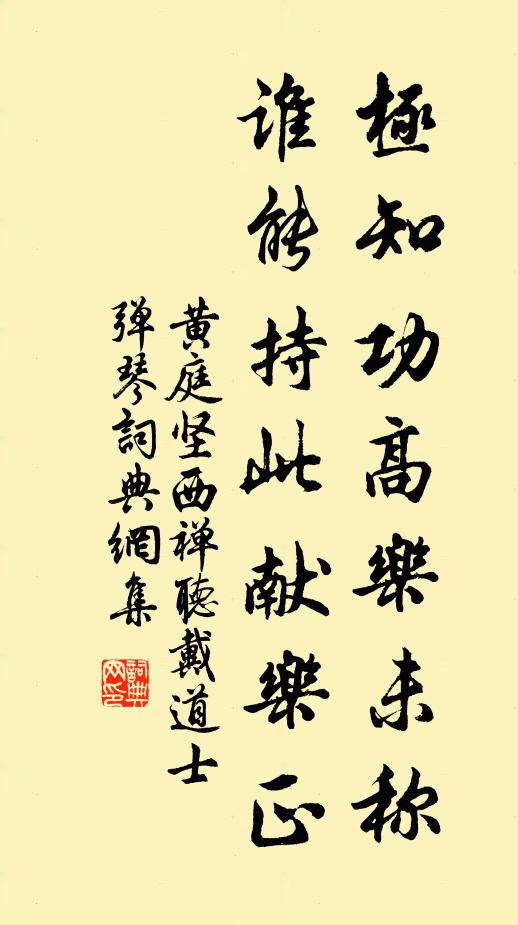 極知功高樂未称
谁能持此献樂正
黄庭坚西禅聽戴道士
弹琴詞典網集
詞典网印